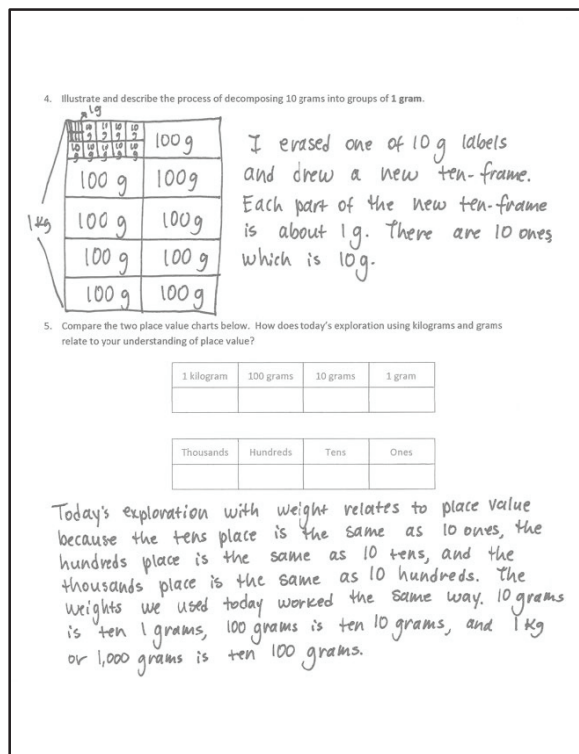 4. Illustrate and describe the process of decomposing 10 grams into groups of 1 gram.
1g
10 g 10 g 10 g 10 g
10 g 10 g 10 g 10 g 10 g
100 g
I erased one of 10 g labels
and drew a new ten-frame.
Each part of the new ten-frame
is about 1g. There are 10 ones,
which is 10g.
100 g 100g
1 kg
100 g 100g
100 g 100 g
100 g 100 g
5. Compare the two place value charts below. How does today's exploration using kilograms and grams
relate to your understanding of place value?
1 kilogram 100 grams 10 grams 1 gram
Thousands Hundreds Tens Ones
Today's exploration with weight relates to place value
because the tens place is the same as 10 ones, the
hundreds place is the same as 10 tens, and the
thousands place is the same as 10 hundreds. The
weights we used today worked the same way. 10 grams
is ten 1 grams, 100 grams is ten 10 grams, and 1 kg
or 1,000 grams is ten 100 grams.